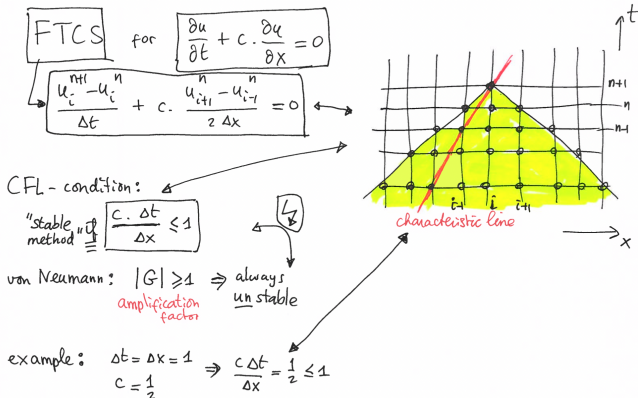 FTCS for ∂u/∂t + c. ∂u/∂x = 0
(u_i^{n+1} - u_i^n)/Δt + c. (u_{i+1}^n - u_{i-1}^n)/(2 Δx) = 0
CFL-condition:
"stable method" if c. Δt/Δx ≤ 1
von Neumann: |G| ≥ 1 ⇒ always unstable
amplification
factor
example: Δt = Δx = 1 ⇒ cΔt/Δx = 1/2 ≤ 1
c = 1/2
t
n+1
n
n-1
i-1 i i+1
characteristic line
x